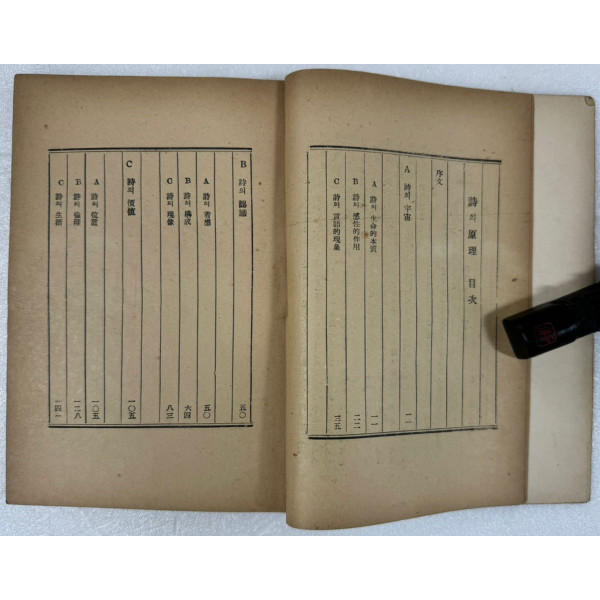 詩의 原理 目次
序文
A 詩의 宇宙 一一
A 詩의 生命的本質 一一
B 詩의 感性的作用 二二
C 詩의 言語的現象 三五
B 詩의 認識 五〇
A 詩의 着想 五〇
B 詩의 構成 六四
C 詩의 現像 八三
C 詩의 價値 一〇五
A 詩의 位置 一〇五
B 詩의 倫理 一二八
C 詩의 生活 一四一